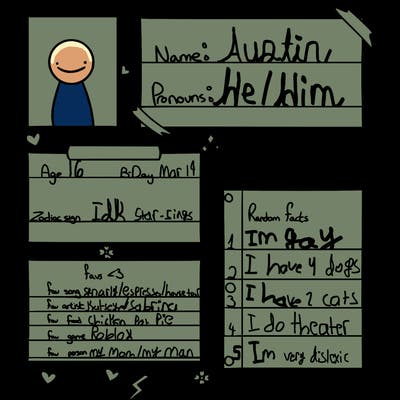 Name: Austin
Pronouns: He/Him
Age 16 BDay Mar 14
Zodiac sign Idk Star-rings
favs <3
fav song gnarly/espresso/
fav artist Katseye/Sabrina
fav food Chicken Pot Pie
fav game Roblox
fav person my Mom/my Man
Random facts
1 Im gay
2 I have 4 dogs
3 I have 2 cats
4 I do theater
5 Im very dislexic